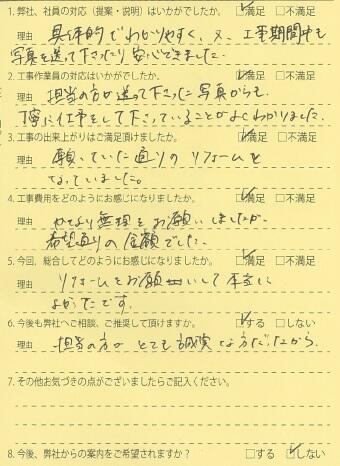 1. 弊社、社員の対応（提案・説明）はいかがでしたか。 ☑満足 □不満足
理由 具体的でわかりやすく、又、工事期間中も
写真を送って下さったり安心できました。
2. 工事作業員の対応はいかがでしたか。 ☑満足 □不満足
理由 担当の方が送って下さった写真からも、
丁寧に仕事をして下さっていることがよくわかりました。
3. 工事の出来上がりはご満足頂けましたか。 ☑満足 □不満足
理由 願っていた通りのリフォームと
なっていました。
4. 工事費用をどのようにお感じになりましたか。 ☑満足 □不満足
理由 無理をお願いしましたが
希望通りの金額でした。
5. 今回、総合してどのようにお感じになりましたか。 ☑満足 □不満足
理由 リフォームをお願いして本当に
よかったです。
6. 今後も弊社へご相談、ご推奨して頂けますか。 ☑する □しない
理由 担当の方がとても誠実な方だったから。
7. その他お気づきの点がございましたらご記入ください。
8. 今後、弊社からの案内をご希望されますか？ □する ☑しない